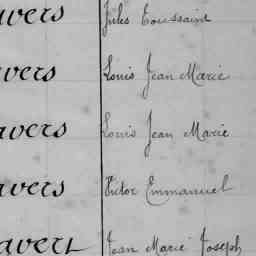 avers Jules Toussaint
avers Louis Jean Marie
avers Louis Jean Marie
avers Victor Emmanuel
avert Jean Marie Joseph